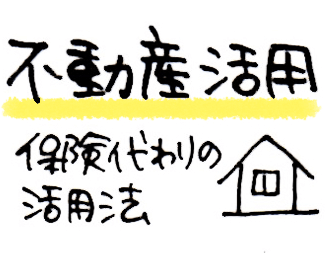 不動産活用
保険代わりの
活用法